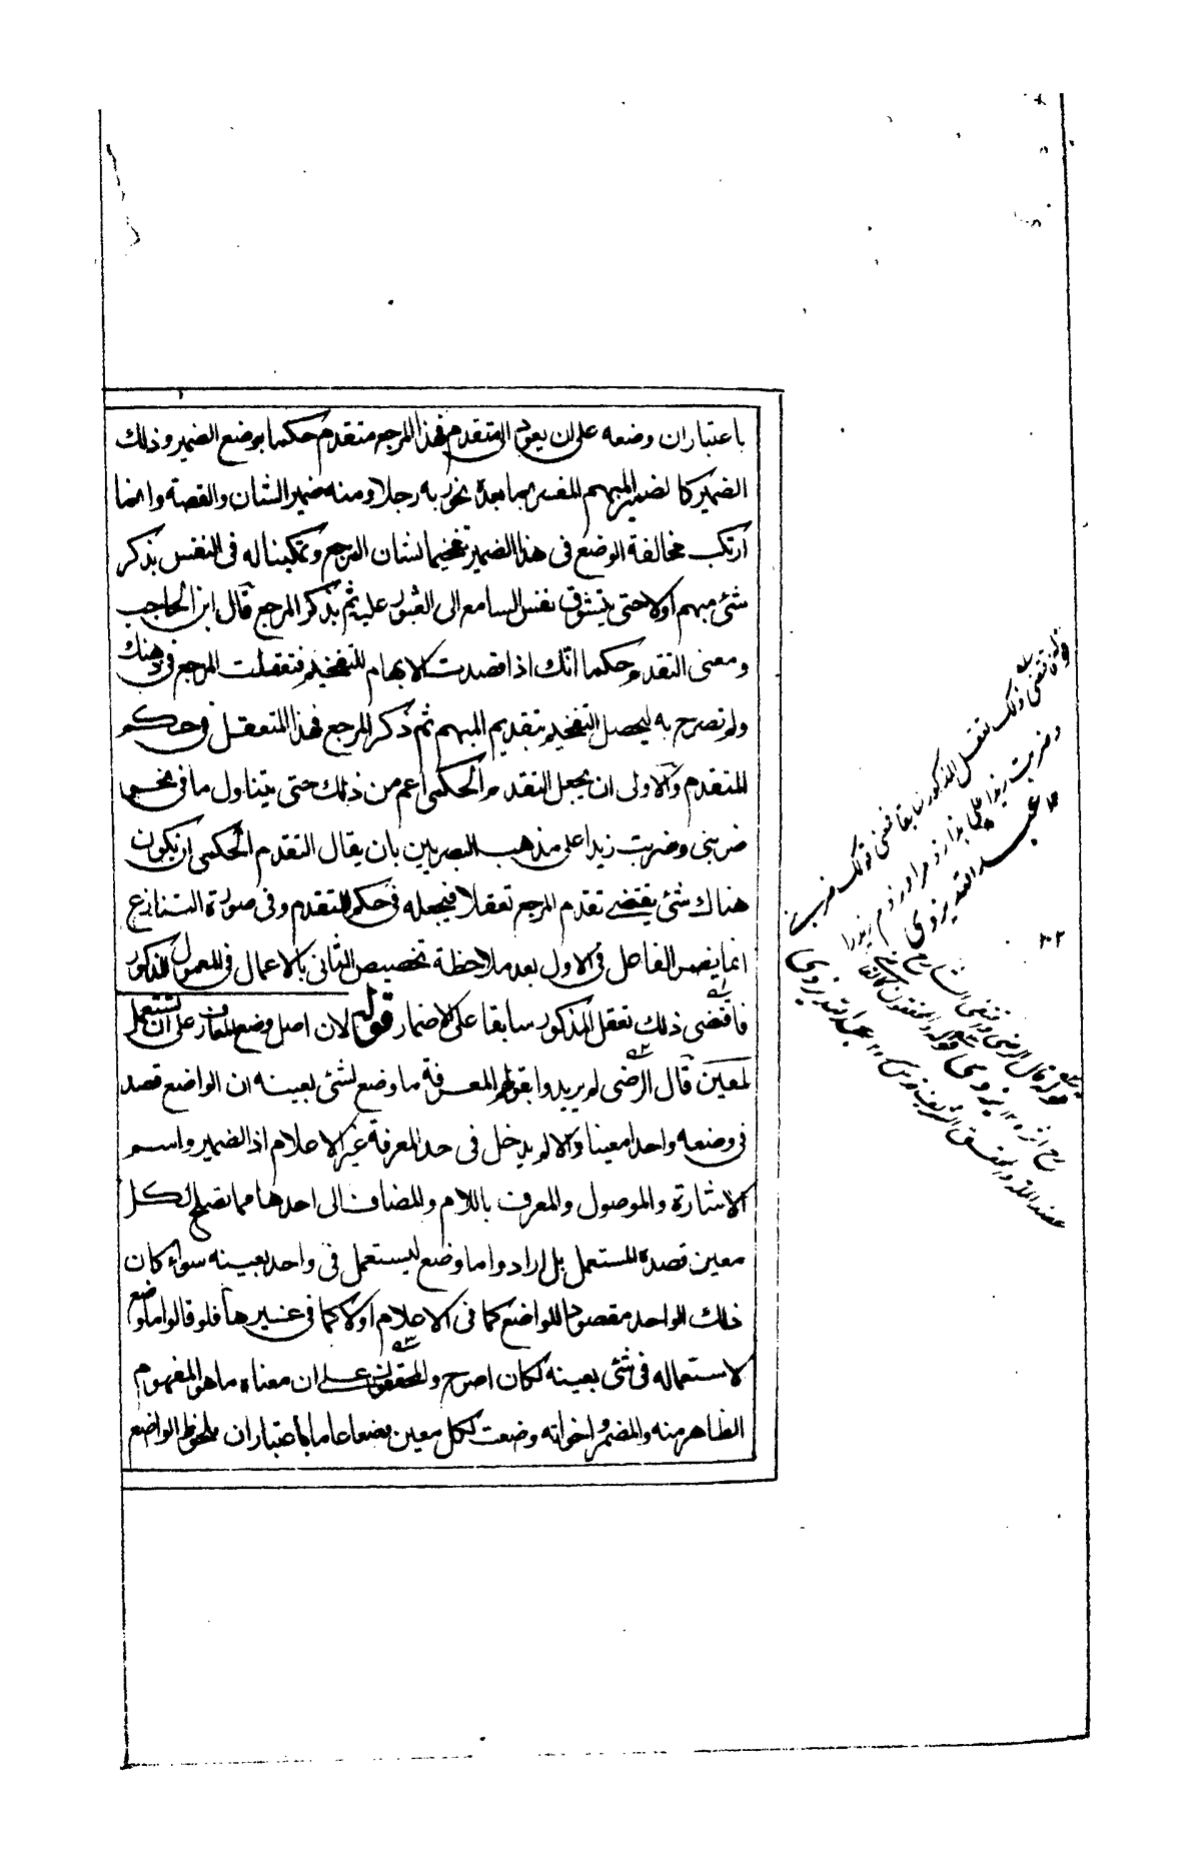 باعتبار ان وضعه على ان يعود الى متقدم فهذا المرجع متقدم حكما بوضع الضمير وذلك
الضمير كالضمير المبهم المفسر بما بعده نحو ربه رجلا ومنه ضمير الشان والقصة وانما
ارتكب مخالفة الوضع فى هذا الضمير تفخيما لشان المرجع وتمكينا له فى النفس بذكر
شئ مبهم اولا حتى يتشوق نفس السامع الى العثور عليه ثم بذكر المرجع قال ابن الحاجب
ومعنى التقدم حكما انك اذا قصدت الابهام للتفخيم فتعقلت المرجع فى ذهنك
ولم تصرح به ليحصل التفخيم بتقديم المبهم ثم ذكر المرجع فهذا المتعقل فى حكم
المتقدم والاولى ان يجعل التقدم الحكمى اعم من ذلك حتى يتناول ما فى نحو
ضربنى وضربت زيدا على مذهب البصريين بان يقال التقدم الحكمى ان يكون
هناك شئ يقتضى تقدم المرجع تعقلا فيجعله فى حكم المتقدم وفى صورة التنازع
انما يضمر الفاعل فى الاول بعد ملاحظة تخصيص الثانى بالاعمال فى المعمول المذكور
فاقتضى ذلك تعقل المذكور سابقا على الاضمار قوله لان اصل وضع المعارف على ان تستعمل
لمعين قال الرضى لم يريدوا بقولهم المعرفة ما وضع لشئ بعينه ان الواضع قصد
فى وضعه واحدا معينا والا لم يدخل فى حد المعرفة غير الاعلام اذ الضمير واسم
الاشارة والموصول والمعرف باللام والمضاف الى احدها مما تصلح لكل
معين قصده المستعمل بل ارادوا ما وضع ليستعمل فى واحد بعينه سواء كان
ذلك الواحد مقصود الواضع كما فى الاعلام اولا كما فى غيرها فلو قالوا ما وضع
لاستعماله فى شئ بعينه لكان اصرح والمحققون على ان معناه ما هو المفهوم
الظاهر منه والمضمر واخواته وضعت لكل معين وضعا عاما باعتبار ان ملحوظ الواضع
قوله فاقتضى ذلك تعقل المذكور سابقا فمعنى قولك ضربنى
وضربت زيدا
عبد الله يزدى
قوله قال الرضى واقتفى الشارح
يزدى قوله والمحققون كالقاضى
عضد الملة والمحقق الشريف قدس عبد الله يزدى
٢٠٢